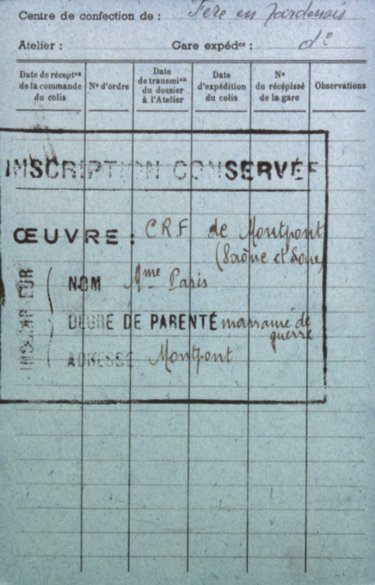 Centre de confection de : Fère en Tardenois
Atelier : Gare expédce : do
Date de récepton de la commande du colis
No d'ordre
Date de transmion du dossier à l'Atelier
Date d'expédition du colis
No du récépissé de la gare
Observations
INSCRIPTION CONSERVÉE
ŒUVRE : CRF de Montpont
(Saône et Loire)
NOM Mme Paris
DEGRÉ DE PARENTÉ marraine de
guerre
ADRESSE Montpont